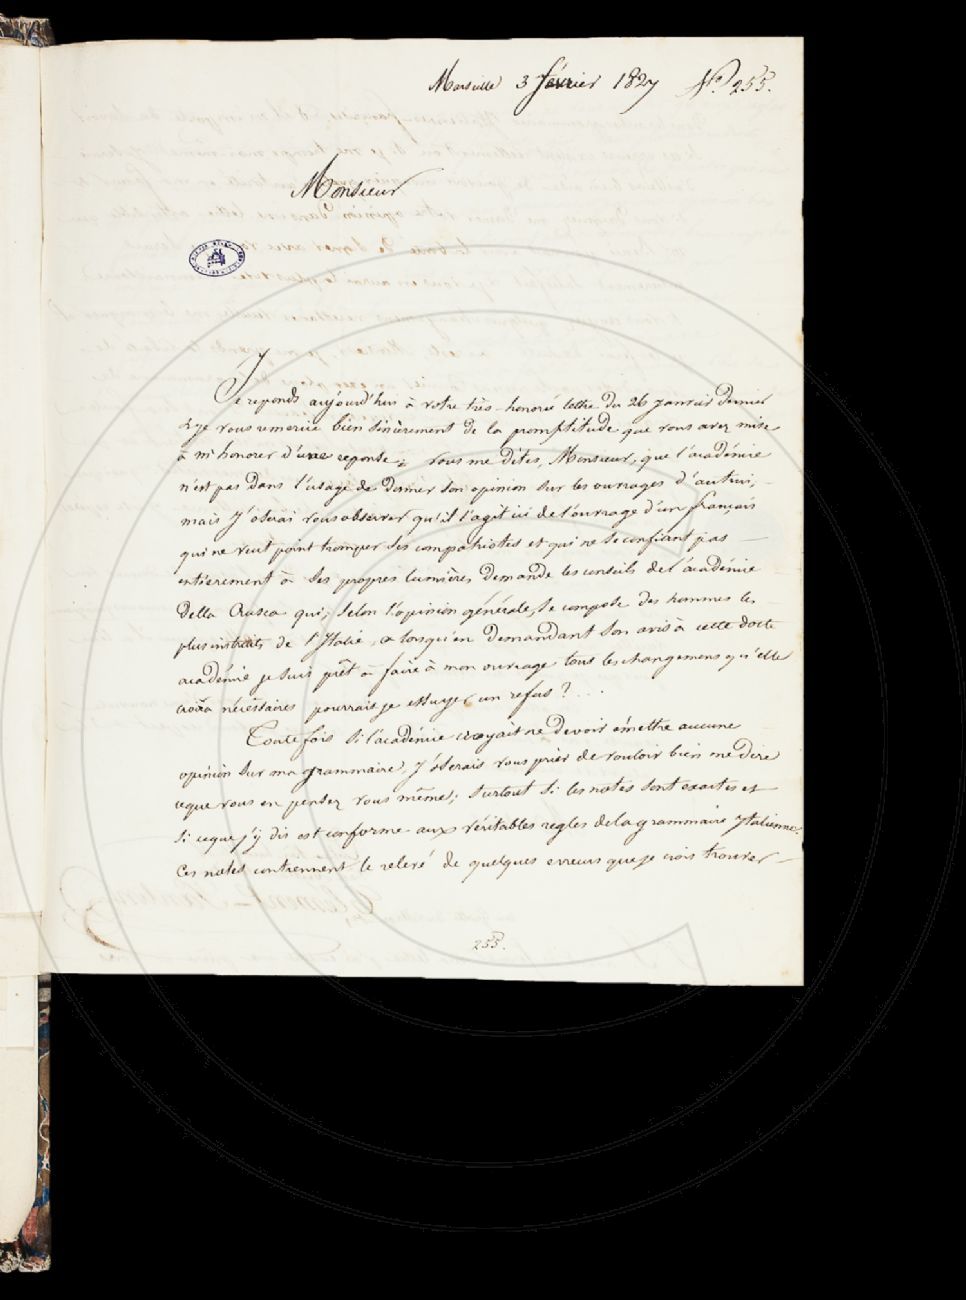 Marseille 3 février 1827 N.º 255.
Monsieur
Je reponds aujourd'hui à votre très-honoré lettre du 26 Janvier dernier
& je vous remercie bien sincèrement de la promptitude que vous avez mise
à m'honorer d'une reponse; vous me dites, Monsieur, que l'académie
n'est pas dans l'usage de donner son opinion sur les ouvrages d'autrui,
mais j'oserai vous observer qu'il s'agit ici de l'ouvrage d'un français
qui ne veut point tromper ses compatriotes et qui ne se confiant pas
entièrement à ses propres lumières, demande les conseils de l'académie
della Crusca qui, selon l'opinion générale, se compose des hommes les
plus instruits de l'Italie, & lorsqu'en demandant son avis à cette docte
académie je suis prêt à faire à mon ouvrage tous les changemens qu'elle
croira nécessaires pourrais-je essuyer un refus? ...
Toutefois si l'académie croyait ne devoir émettre aucune
opinion sur ma grammaire, j'oserais vous prier de vouloir bien me dire
ce que vous en pensez vous même; surtout si les notes sont exactes et
si ce que j'y dis est conforme aux véritables regles de la grammaire Italienne.
Ces notes contiennent le relevé de quelques erreurs que je crois trouver
255.